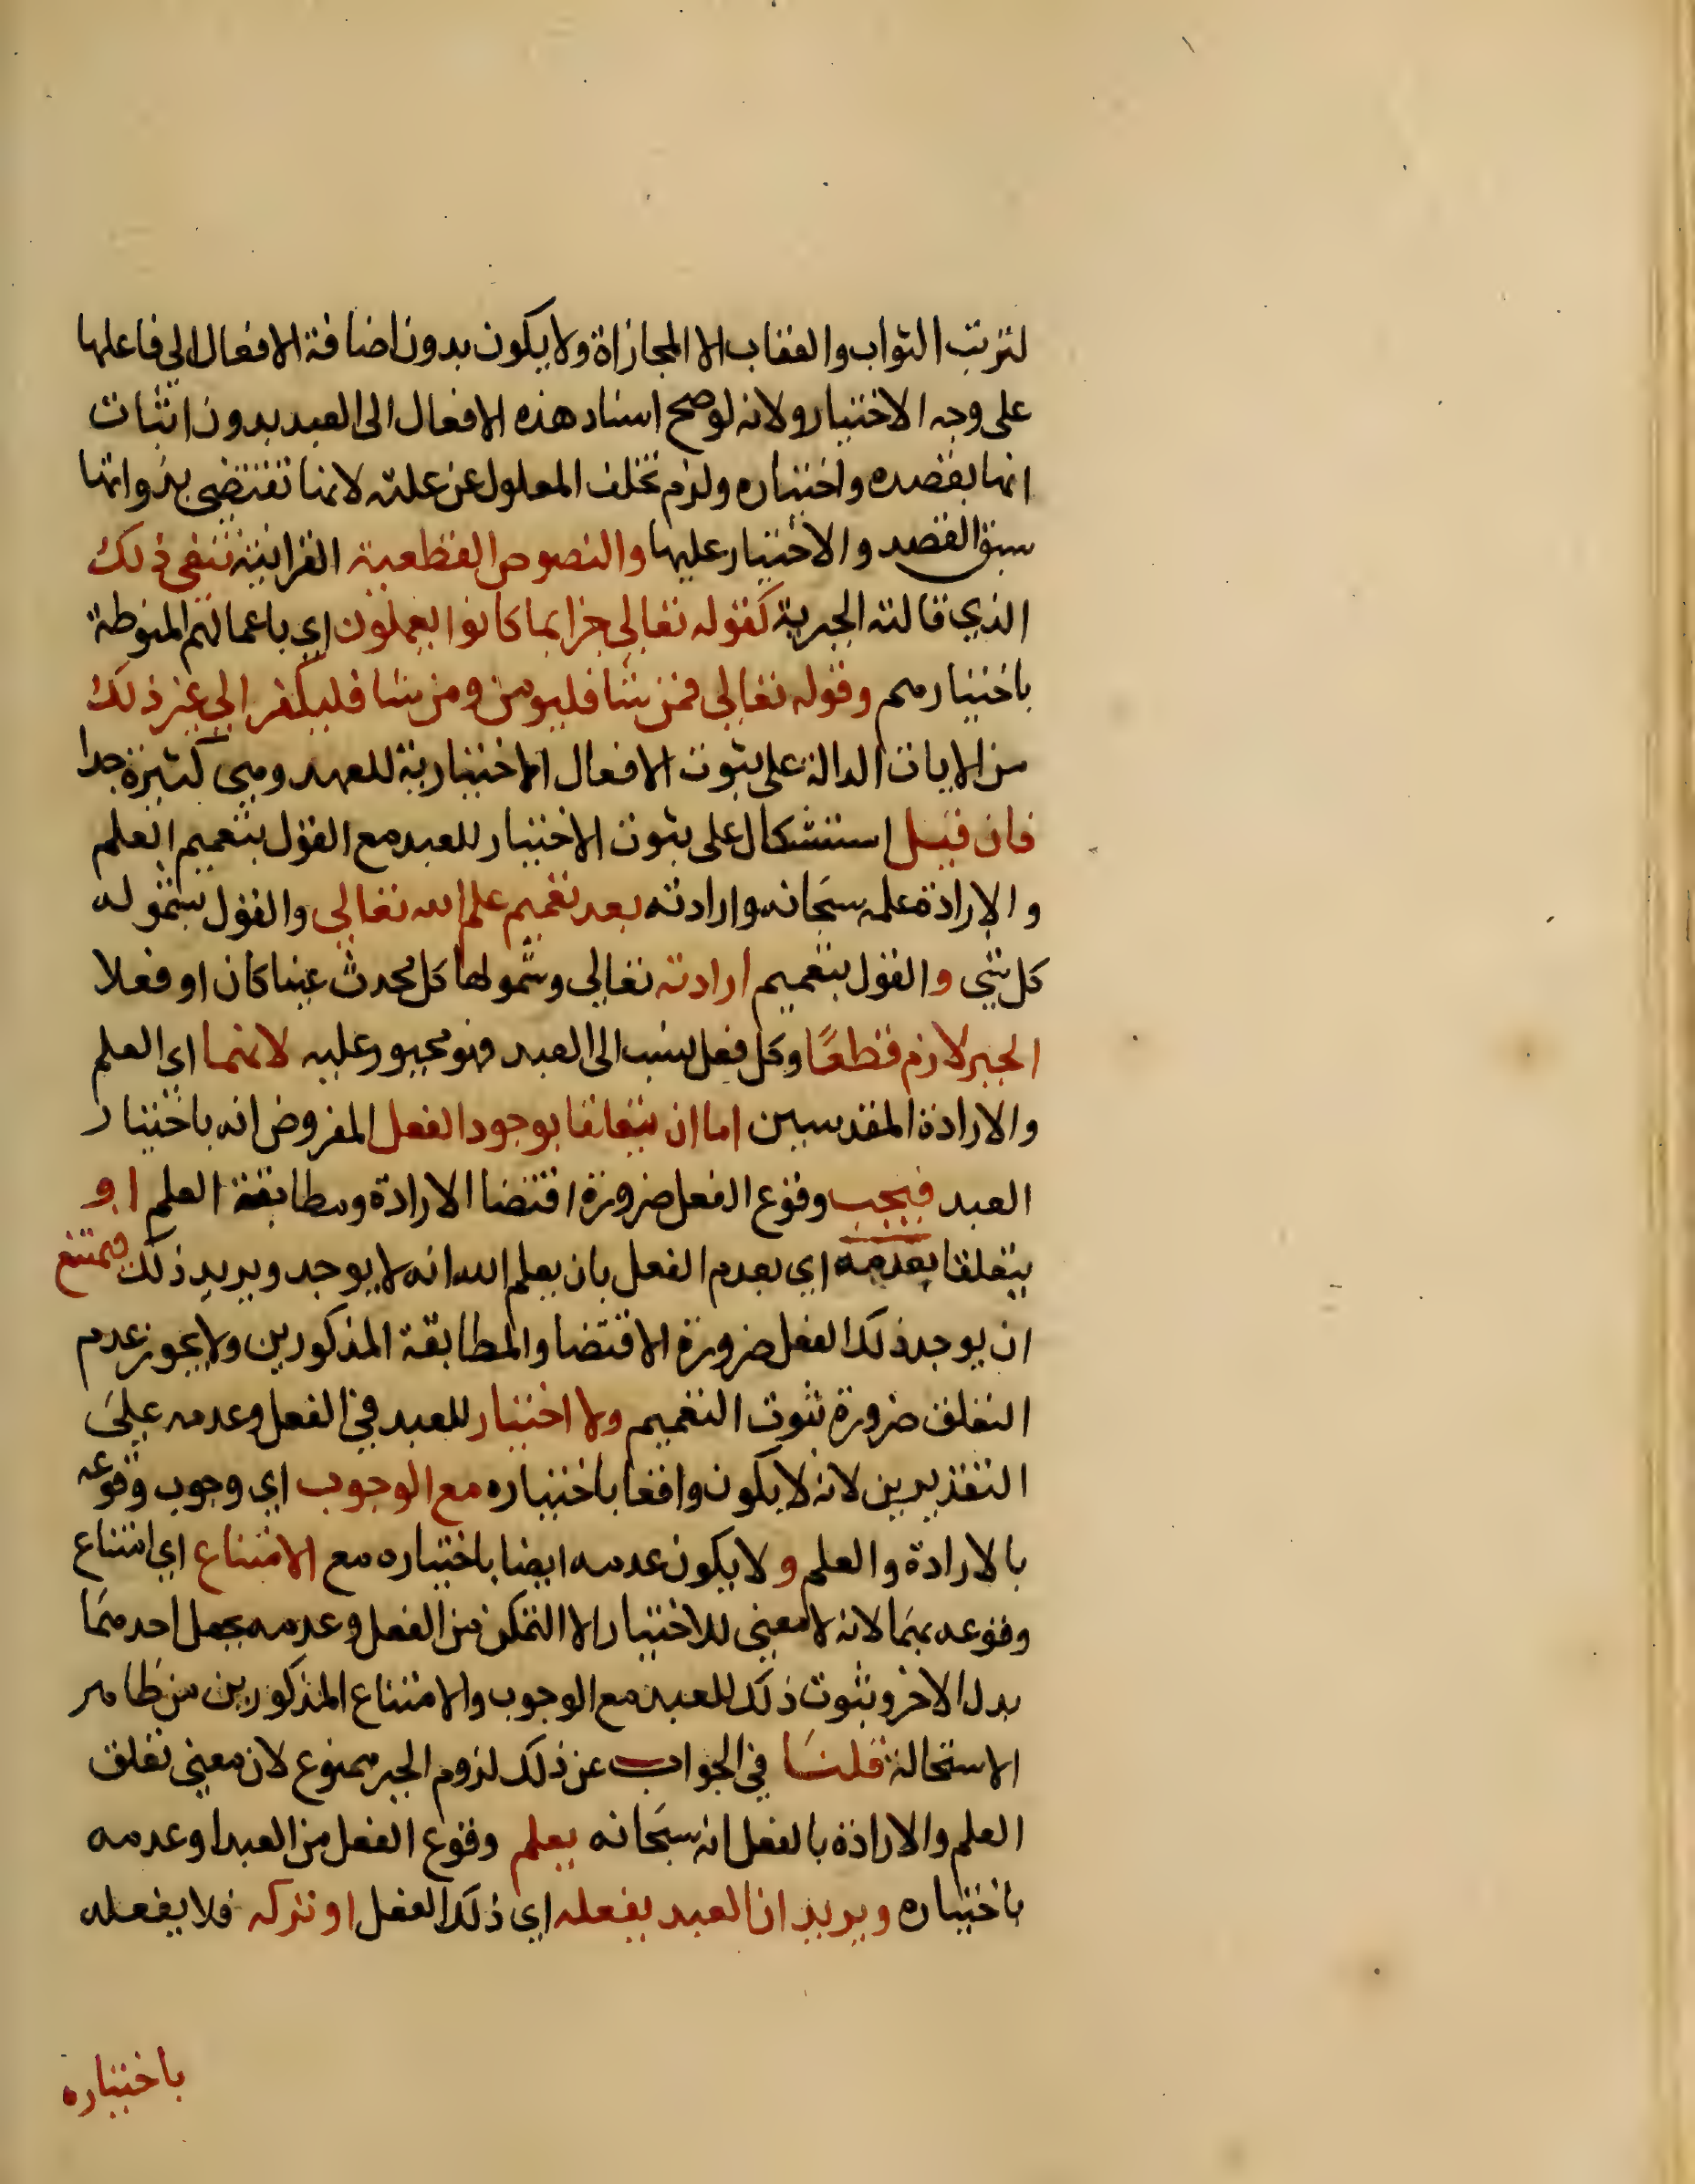 لترتب الثواب والعقاب الا المجازاة ولا يكون بدون اضافة الافعال الى فاعلها
على وجه الاختيار ولانه لو صح اسناد هذه الافعال الى العبد بدون اثبات
انها بقصده واختياره ولزم تخلف المعلول عن علته لانها تقتضى بذواتها
سبق القصد والاختيار عليها والنصوص القطعية القرانية تنفى ذلك
الذي قالته الجبرية كقوله تعالى جزا بما كانوا يعملون اي باعمالهم المنوطة
باختيارهم وقوله تعالى فمن شا فليومن ومن شا فليكفر الى غير ذلك
من الايات الدالة على ثبوت الافعال الاختيارية للعبد وهي كثيرة جدا
فان قيل استشكال على ثبوت الاختيار للعبد مع القول بتعميم العلم
والارادة علمه سبحانه وارادته بعد تعميم علم الله تعالى والقول بشموله
كل شي والقول بتعميم ارادته تعالى وشمولها كل محدث عينا كان او فعلا
الجبر لازم قطعًا وكل فعل ينسب الى العبد فهو مجبور عليه لانهما اي العلم
والارادة المقدسين اما ان يتعلقا بوجود الفعل المفروض انه باختيار
العبد فيجب وقوع الفعل ضرورة اقتضا الارادة ومطابقة العلم او
يتعلقا بعدمه اي بعدم الفعل بان يعلم الله انه لا يوجد ويريد ذلك فيمتنع
ان يوجد ذلك الفعل ضرورة الاقتضا والمطابقة المذكورين ولا يجوز عدم
التعلق ضرورة ثبوت التعميم ولا اختيار للعبد في الفعل وعدمه على
التقديرين لانه لا يكون واقعا باختياره مع الوجوب اي وجوب وقوعه
بالارادة والعلم و لا يكون عدمه ايضا باختياره مع الامتناع اي امتناع
وقوعه بهما لانه لا معنى للاختيار الا التمكن من الفعل وعدمه بجعل احدهما
بدل الاخر وثبوت ذلك للعبد مع الوجوب والامتناع المذكورين من ظاهر
الاستحالة قلنا في الجواب عن ذلك لزوم الجبر ممنوع لان معنى تعلق
العلم والارادة بالفعل انه سبحانه يعلم وقوع الفعل من العبد او عدمه
باختياره ويريد ان العبد يفعله اي ذلك الفعل او تركه فلا يفعله
باختياره